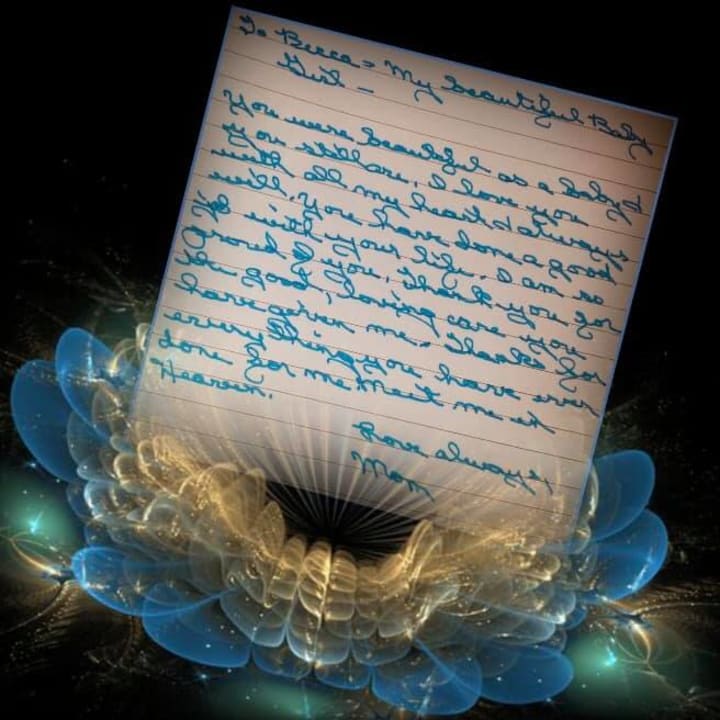 To Becca - My beautiful Baby
Girl -
You were beautiful as a baby &
you still are, I love you
with all my heart & always
will. You have done a good
job with your life. I am so
proud of you, Thank you for
the good, loving care you
have given me. Thanks for
every thing you have ever
done for me. Meet me in
Heaven.
Love always
Mom